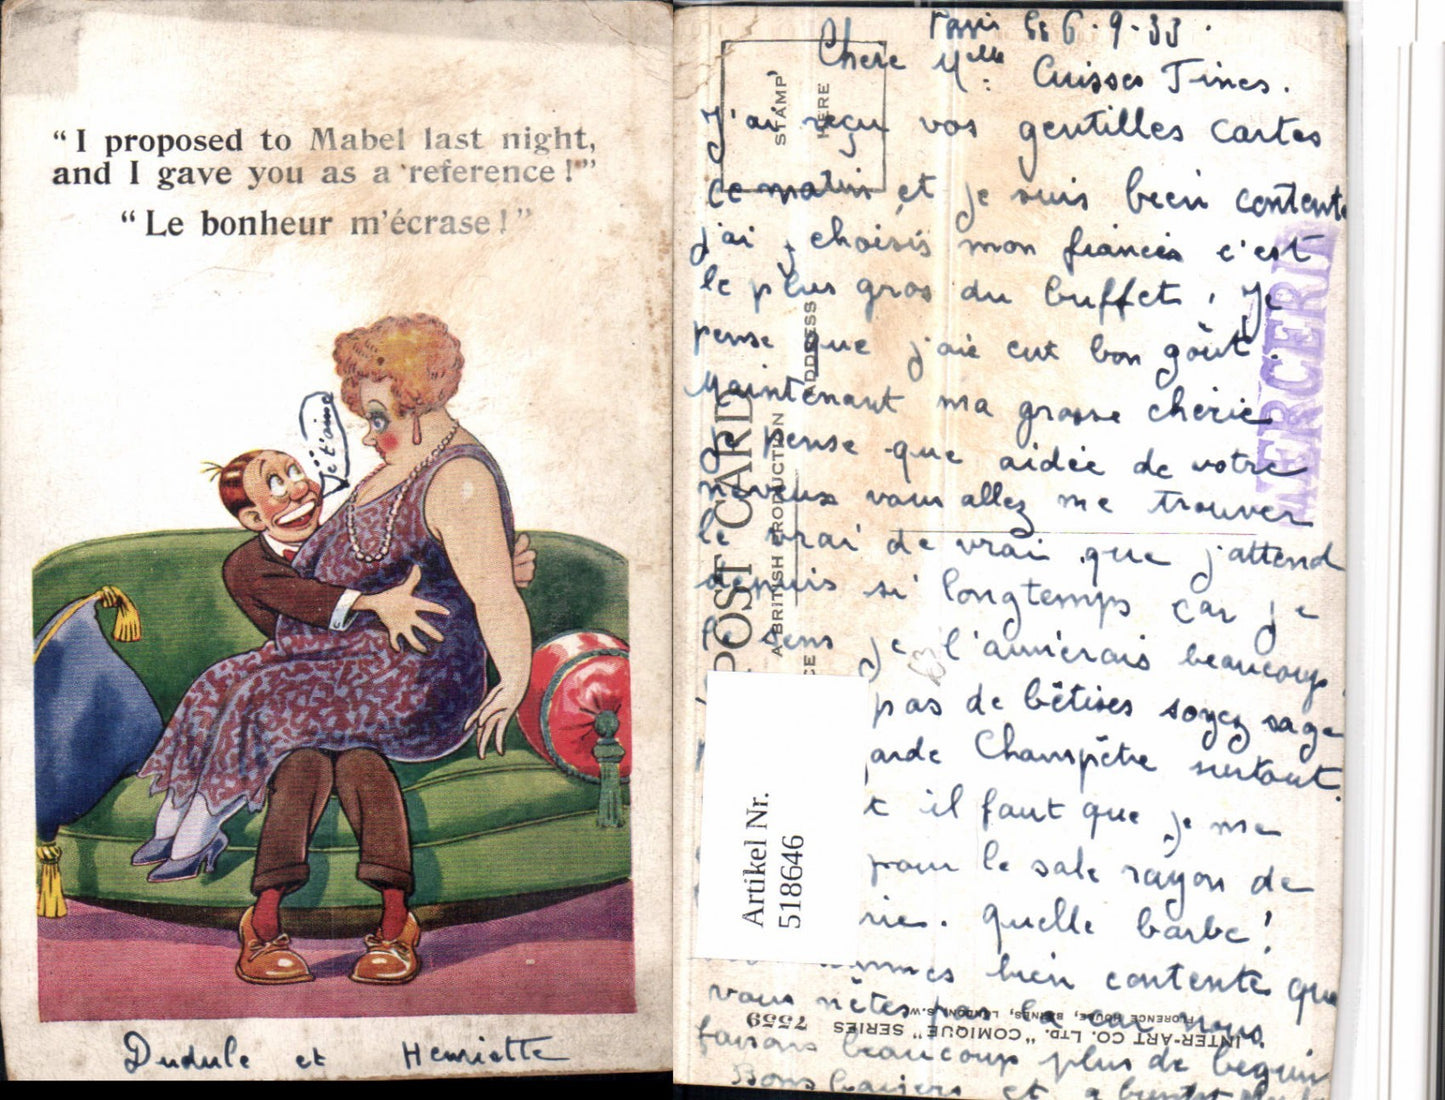 “I proposed to Mabel last night,
and I gave you as a reference!”
“Le bonheur m'écrase!”
Je t'aime
Dudule et Henriette
Paris le 6.9.33.
Chere Melle Cuisses Fines.
J'ai reçu vos gentilles cartes
ce matin et je suis bien contente
j'ai choisis mon fiancés c'est
le plus gros du buffet. Je
pense que j'aie eut bon goût.
Maintenant ma grosse cherie
je pense que aidée de votre
neveux vous allez me trouver
le vrai de vrai que j'attend
depuis si longtemps car je
le sens je l'aimerais beaucoup.
pas de bêtises soyez sage
arde Champêtre surtout.
t il faut que je me
pour le sale rayon de
rie. quelle barbe!
mmes bien contente que
vous nêtes pas là car nous
faisons beaucoup plus de beguin
Bons baisers et a bientot
STAMP
HERE
POST CARD
A BRITISH PRODUCTION
ADDRESS
CE
MERCERIE
Artikel Nr.
518646
INTER-ART CO. LTD. "COMIQUE" SERIES 7559
FLORENCE HOUSE, BARNES, LONDON, S.W.